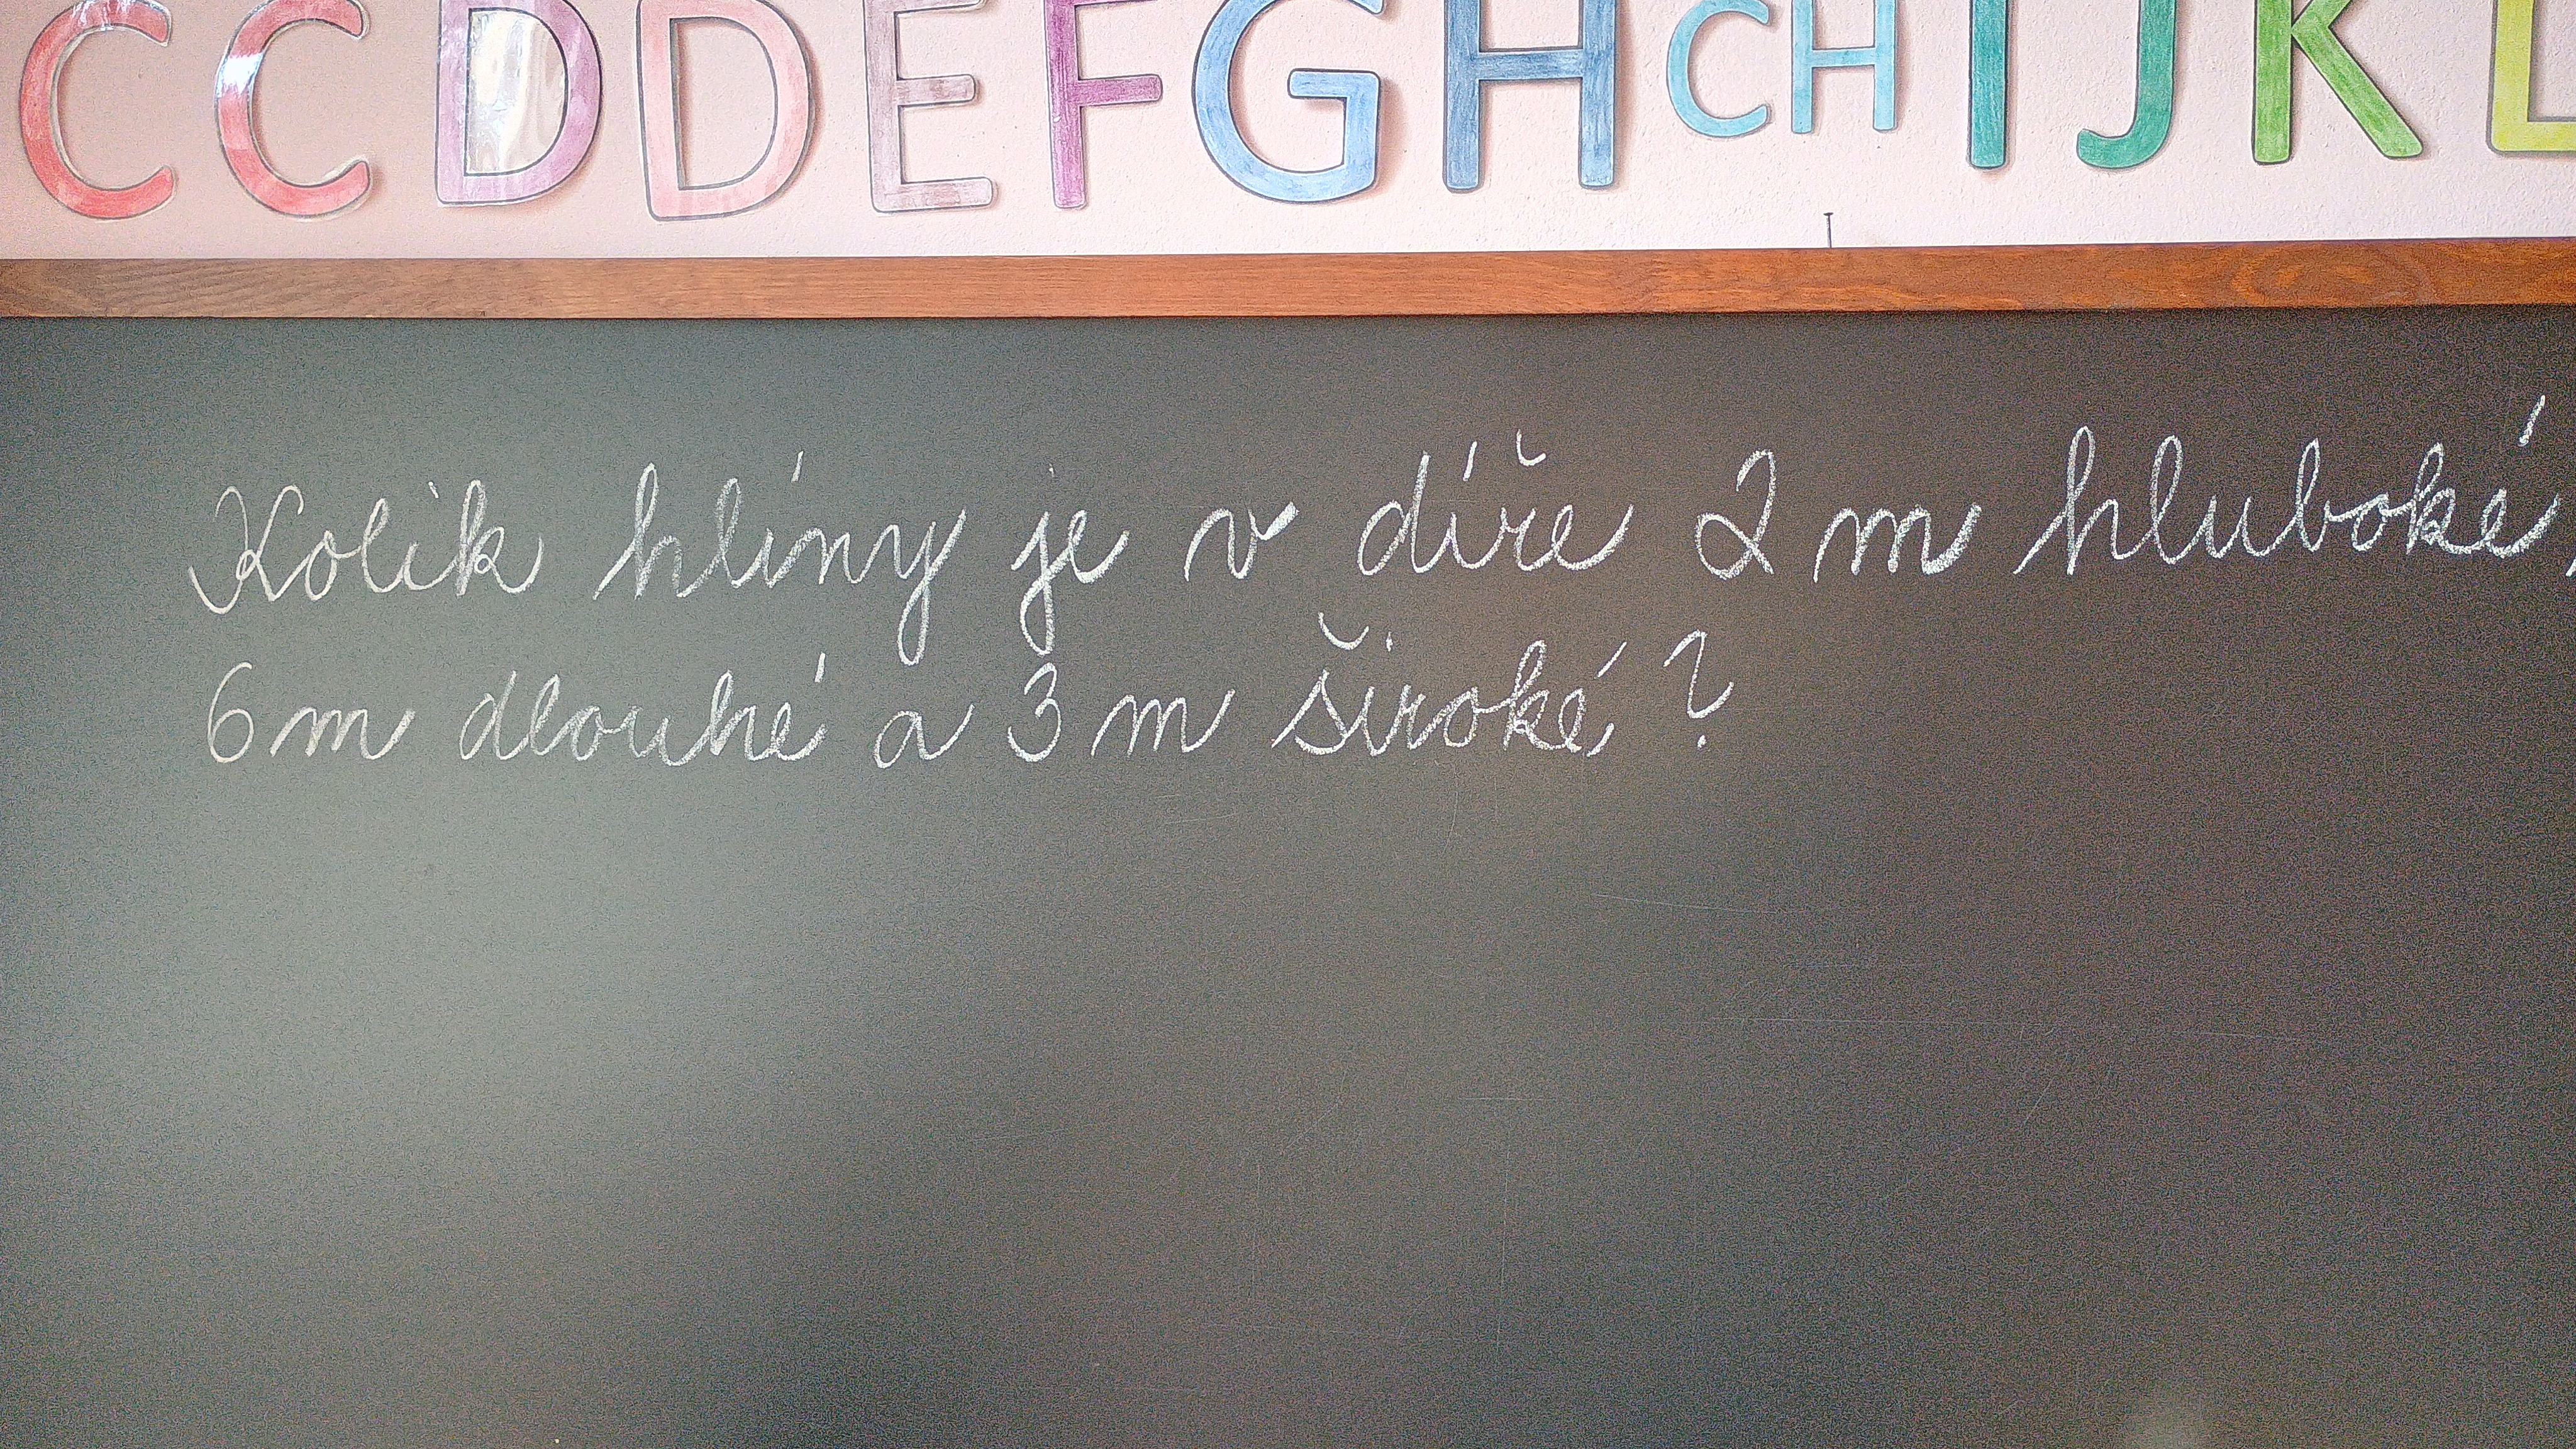 C C D D E F G H CH I J K L
Kolik hlíny je v díře 2 m hluboké,
6 m dlouhé a 3 m široké?